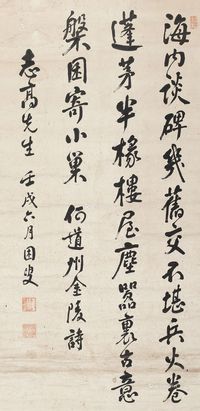 海内談碑幾舊交不堪兵火卷
蓬茅半椽樓屋塵囂裏古意
槃囷寄小巢 何道州金陵詩
志高先生 壬戌六月囷叟